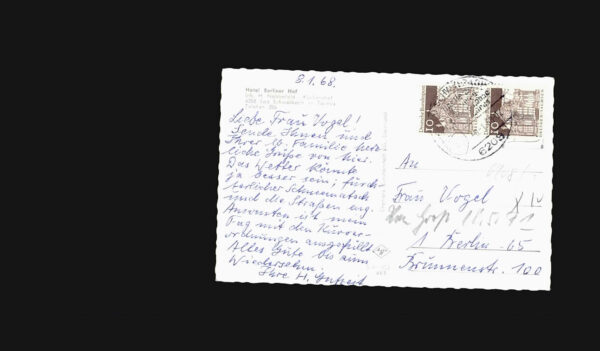 8.1.68.
Hotel Berliner Hof
Liebe Frau Vogel!
Sende Ihnen und
Ihrer lb. Familie herz-
liche Grüße von hier.
Das Wetter könnte
ja besser sein; fürch-
terlicher Schneematsch
und die Straßen eng.
Ansonsten ist mein
Tag mit den Kurver-
ordnungen ausgefüllt.
Alles Gute bis zum
Wiedersehn.
Ihre H.
10
10
6208
An
Frau Vogel
18.5.71
1 Berlin 65
Brunnenstr. 100